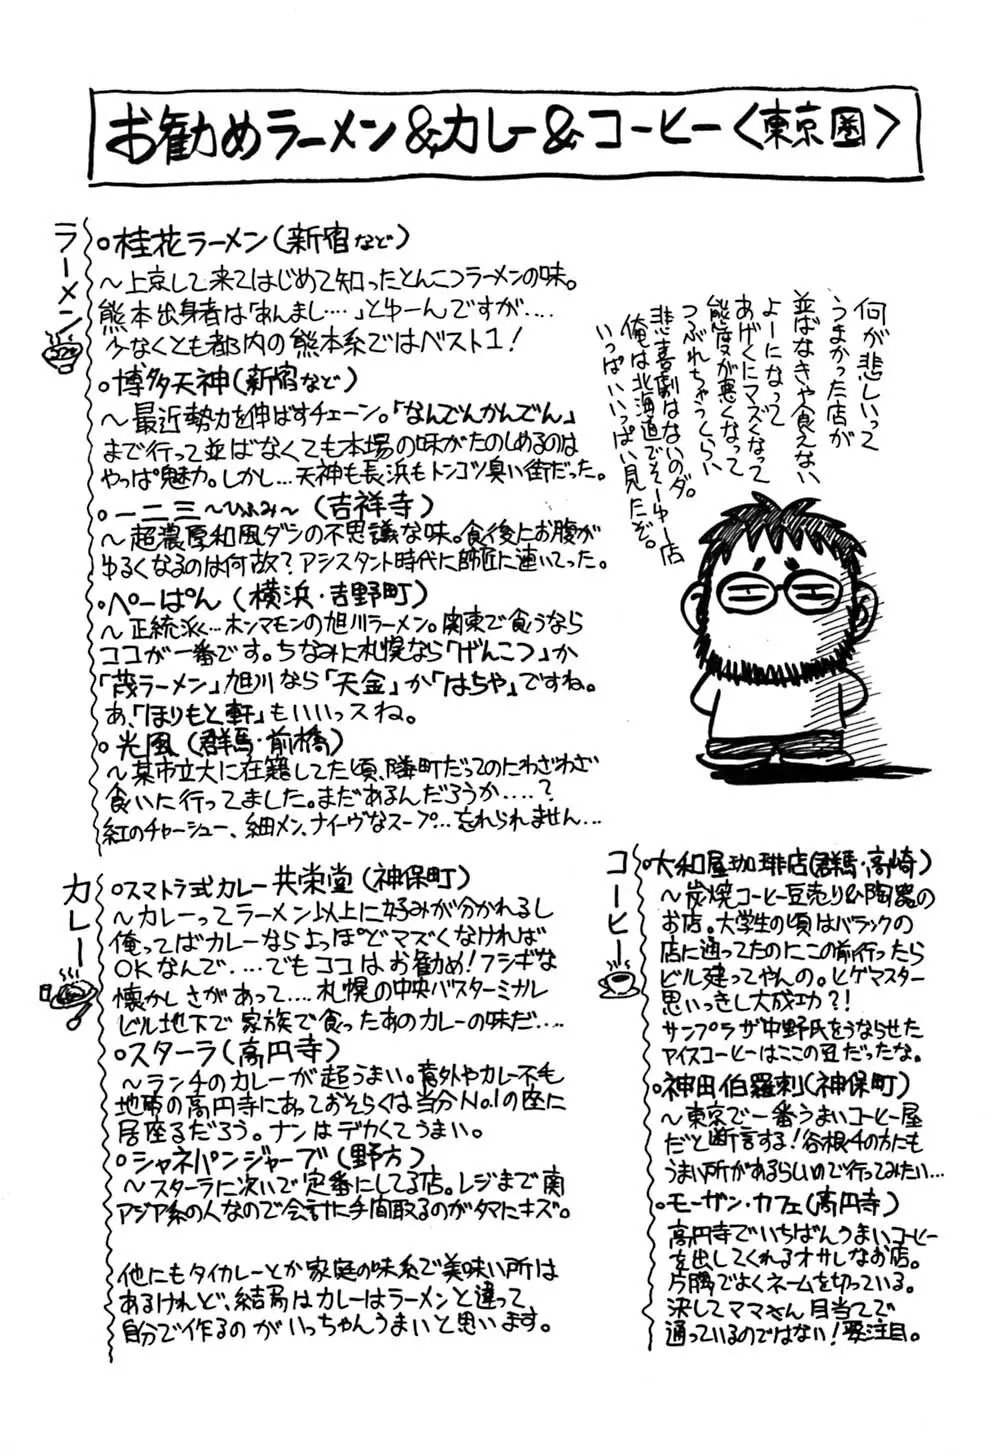 お勧めラーメン&カレー&コーヒー〈東京圏〉
ラーメン
○桂花ラーメン(新宿など)
〜上京して来てはじめて知ったとんこつラーメンの味。
熊本出身者は「あんまし‥‥」とゆーんですが‥‥
少なくとも都内の熊本系ではベスト1!
○博多天神(新宿など)
〜最近勢力を伸ばすチェーン。「なんでんかんでん」
まで行って並ばなくても本場の味がたのしめるのは
やっぱ魅力。しかし…天神も長浜もトンコツ臭い街だった。
○一二三〜ひふみ〜(吉祥寺)
〜超濃厚和風ダシの不思議な味。食後にお腹が
ゆるくなるのは何故?アシスタント時代に師匠に連いてった。
○ぺーぱん(横浜・吉野町)
〜正統派…ホンマモンの旭川ラーメン。関東で食うなら
ココが一番です。ちなみに札幌なら「げんこつ」か
「茂ラーメン」旭川なら「天金」か「はちや」ですね。
あ、「ほりもと軒」もいいっスね。
○光風(群馬・前橋)
〜某市立大に在籍してた頃、隣町だってのにわざわざ
食いに行ってました。まだあるんだろうか‥‥?
紅のチャーシュー、細メン、ナイーヴなスープ…忘れられません…
何が悲しいって
うまかった店が
並ばなきゃ食えない
よーになって
あげくにマズくなって
態度が悪くなって
つぶれちゃうくらい
悲喜劇はないのダ。
俺は北海道でそーゆー店
いっぱいいっぱい見たぞ。
カレー
○スマトラ式カレー共栄堂(神保町)
〜カレーってラーメン以上に好みが分かれるし
俺ってばカレーならよっぽどマズくなければ
OKなんで‥‥でもココはお勧め!フシギな
懐かしさがあって‥‥札幌の中央バスターミナル
ビル地下で家族で食ったあのカレーの味だ‥‥
○スターラ(高円寺)
〜ランチのカレーが超うまい。意外やカレー不毛
地帯の高円寺にあっておそらくは当分No.1の座に
居座るだろう。ナンはデカくてうまい。
○シャネパンジャーブ(野方)
〜スターラに次いで定番にしてる店。レジまで南
アジア系の人なので会計に手間取るのがタマにキズ。
他にもタイカレーとか家庭の味系で美味い所は
あるけれど、結局はカレーはラーメンと違って
自分で作るのがいっちゃんうまいと思います。
コーヒー
○大和屋珈琲店(群馬・高崎)
〜炭焼コーヒー豆売り&陶器の
お店。大学生の頃はバラックの
店に通ってたのにこの前行ったら
ビル建ってやんの。ヒゲマスター
思いっきし大成功?!
サンプラザ中野氏をうならせた
アイスコーヒーはここの豆だったな。
○神田伯羅剌(神保町)
〜東京で一番うまいコーヒー屋
だと断言する!谷根千の方にも
うまい所があるらしいので行ってみたい…
○モーザン・カフェ(高円寺)
高円寺でいちばんうまいコーヒー
を出してくれるオサレなお店。
片隅でよくネームを切っている。
決してママさん目当てで
通っているのではない!要注目。